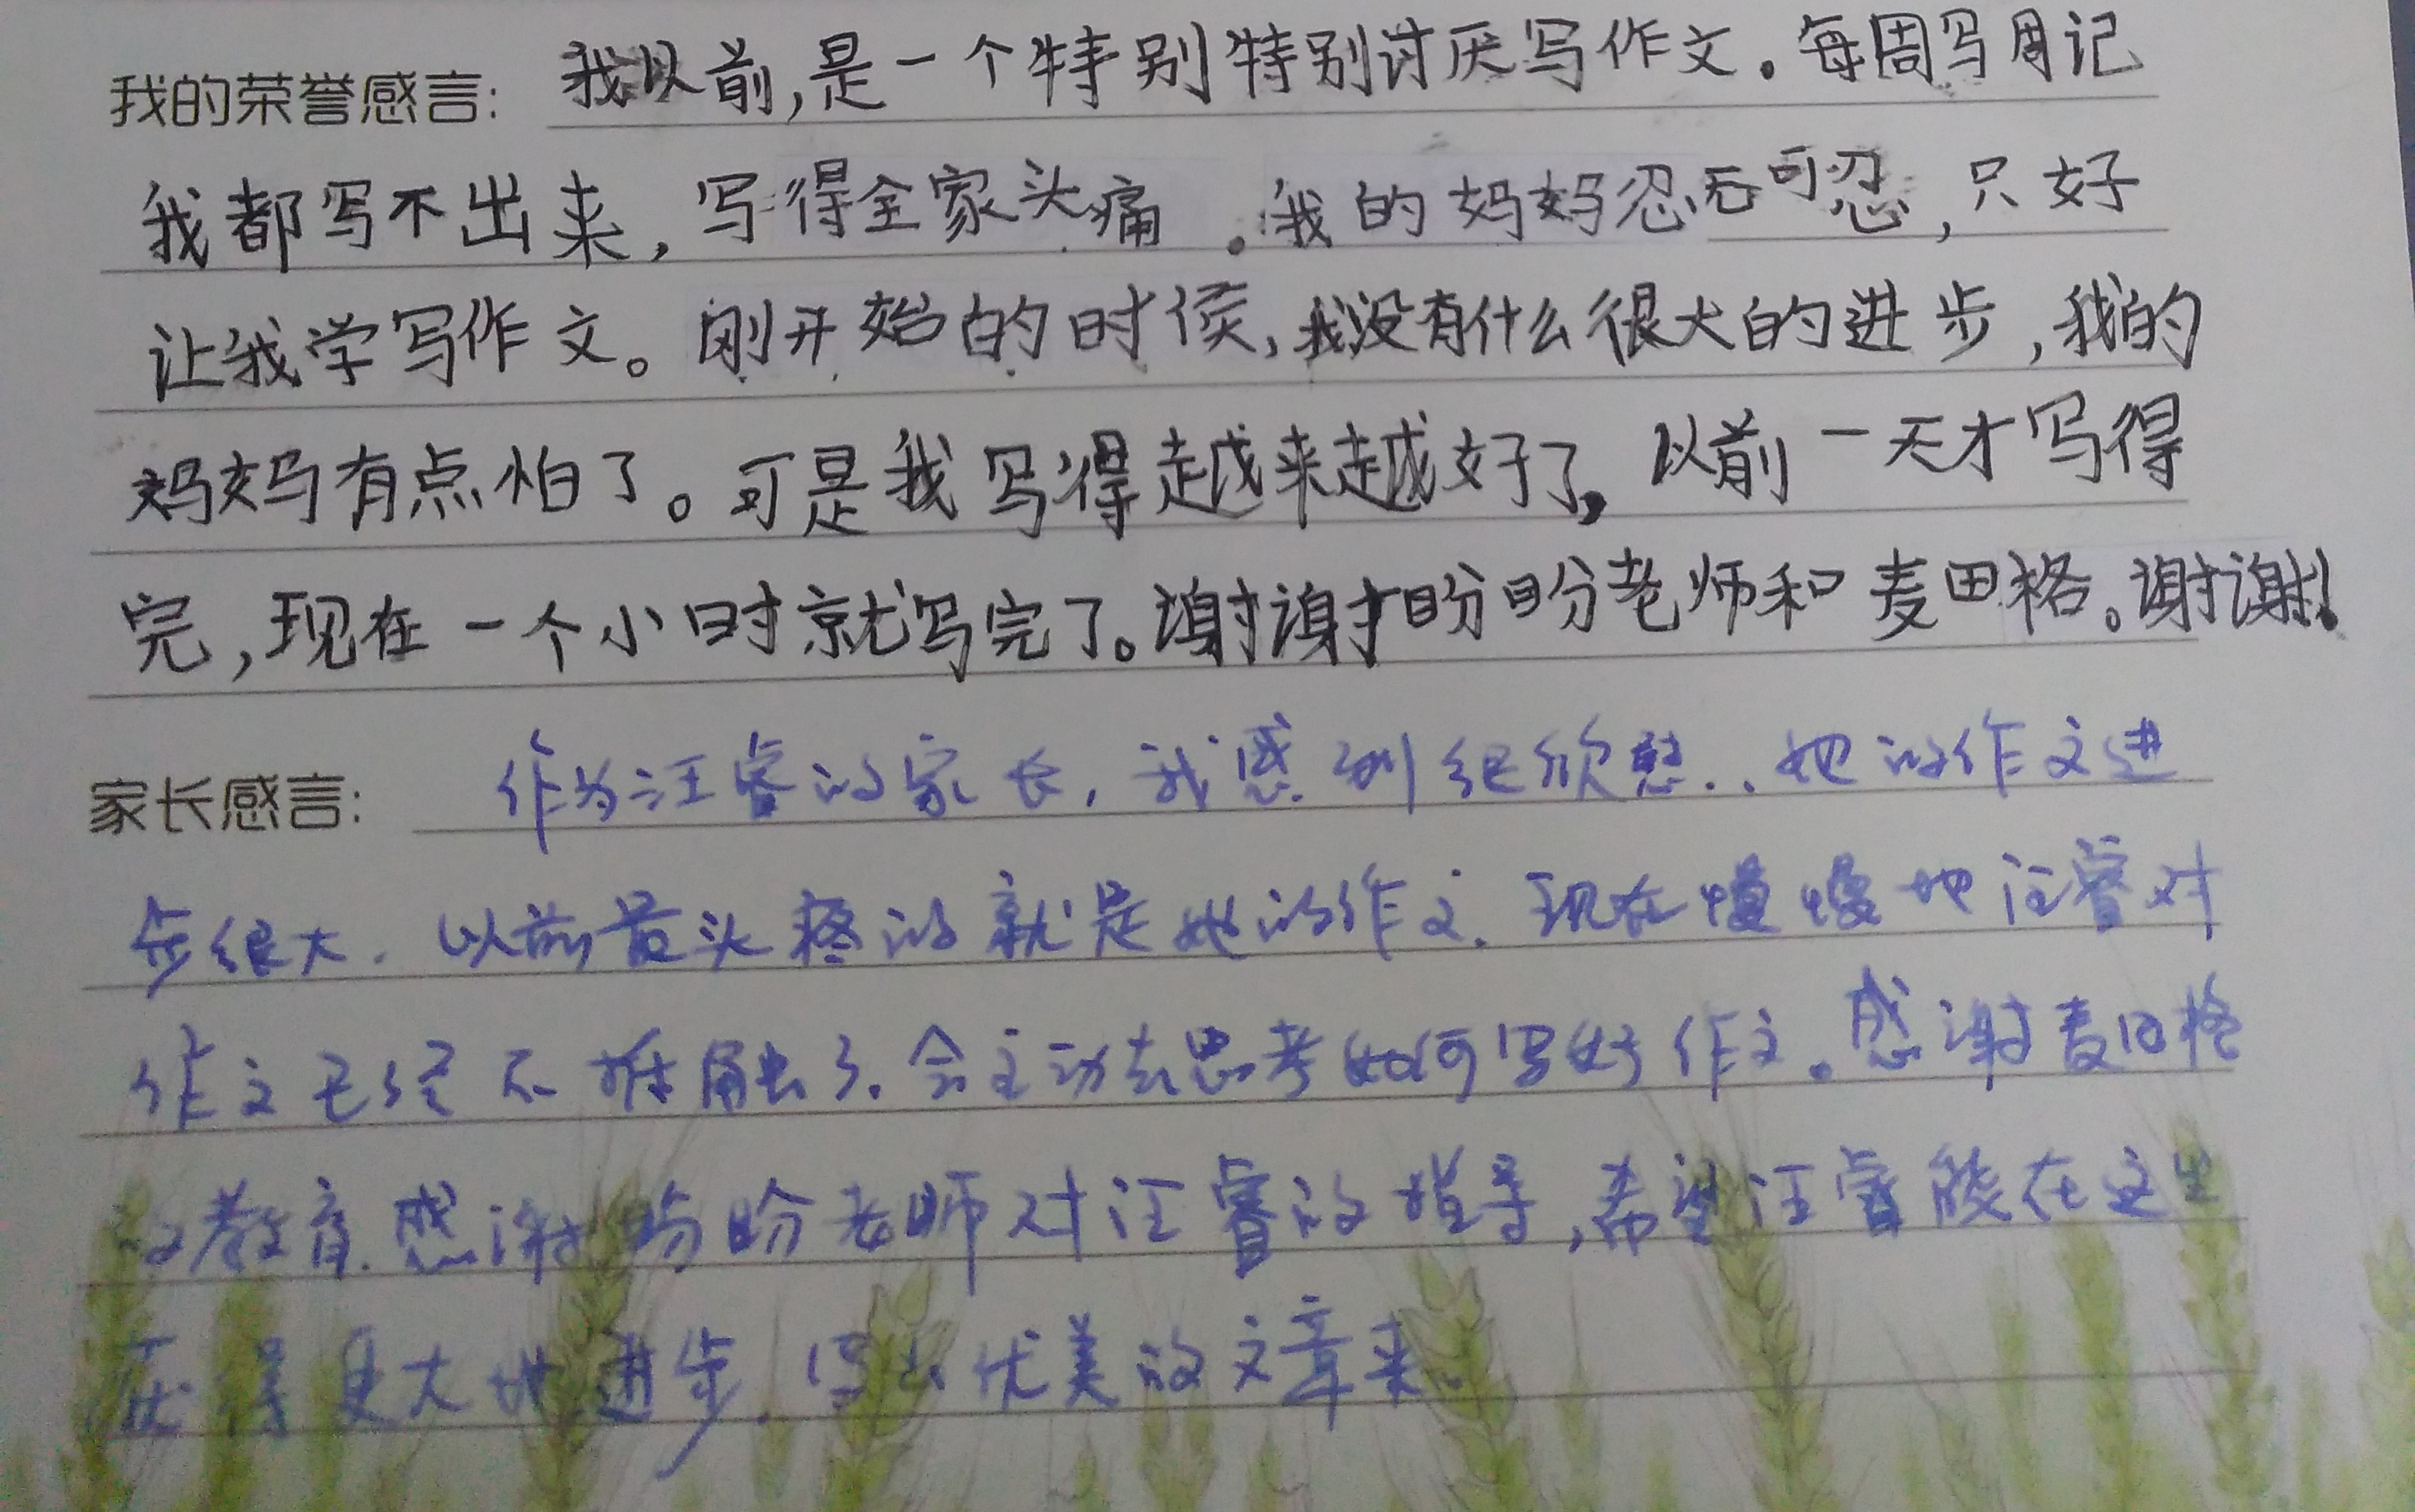 我的荣誉感言: 我以前,是一个特别特别讨厌写作文。每周写周记
我都写不出来,写得全家头痛。我的妈妈忍无可忍,只好
让我学写作文。刚开始的时侯,我没有什么很大的进步,我的
妈妈有点怕了。可是我写得越来越好了,以前一天才写得
完,现在一个小时就写完了。谢谢盼盼老师和麦田格。谢谢!
家长感言: 作为汪睿的家长,我感到很欣慰..她的作文进
步很大.以前最头疼的就是她的作文.现在慢慢地汪睿对
作文已经不抵触了.会主动去思考如何写好作文。感谢麦田格
的教育.感谢盼盼老师对汪睿的指导,希望汪睿能在这里
获得更大地进步.写出优美的文章来.